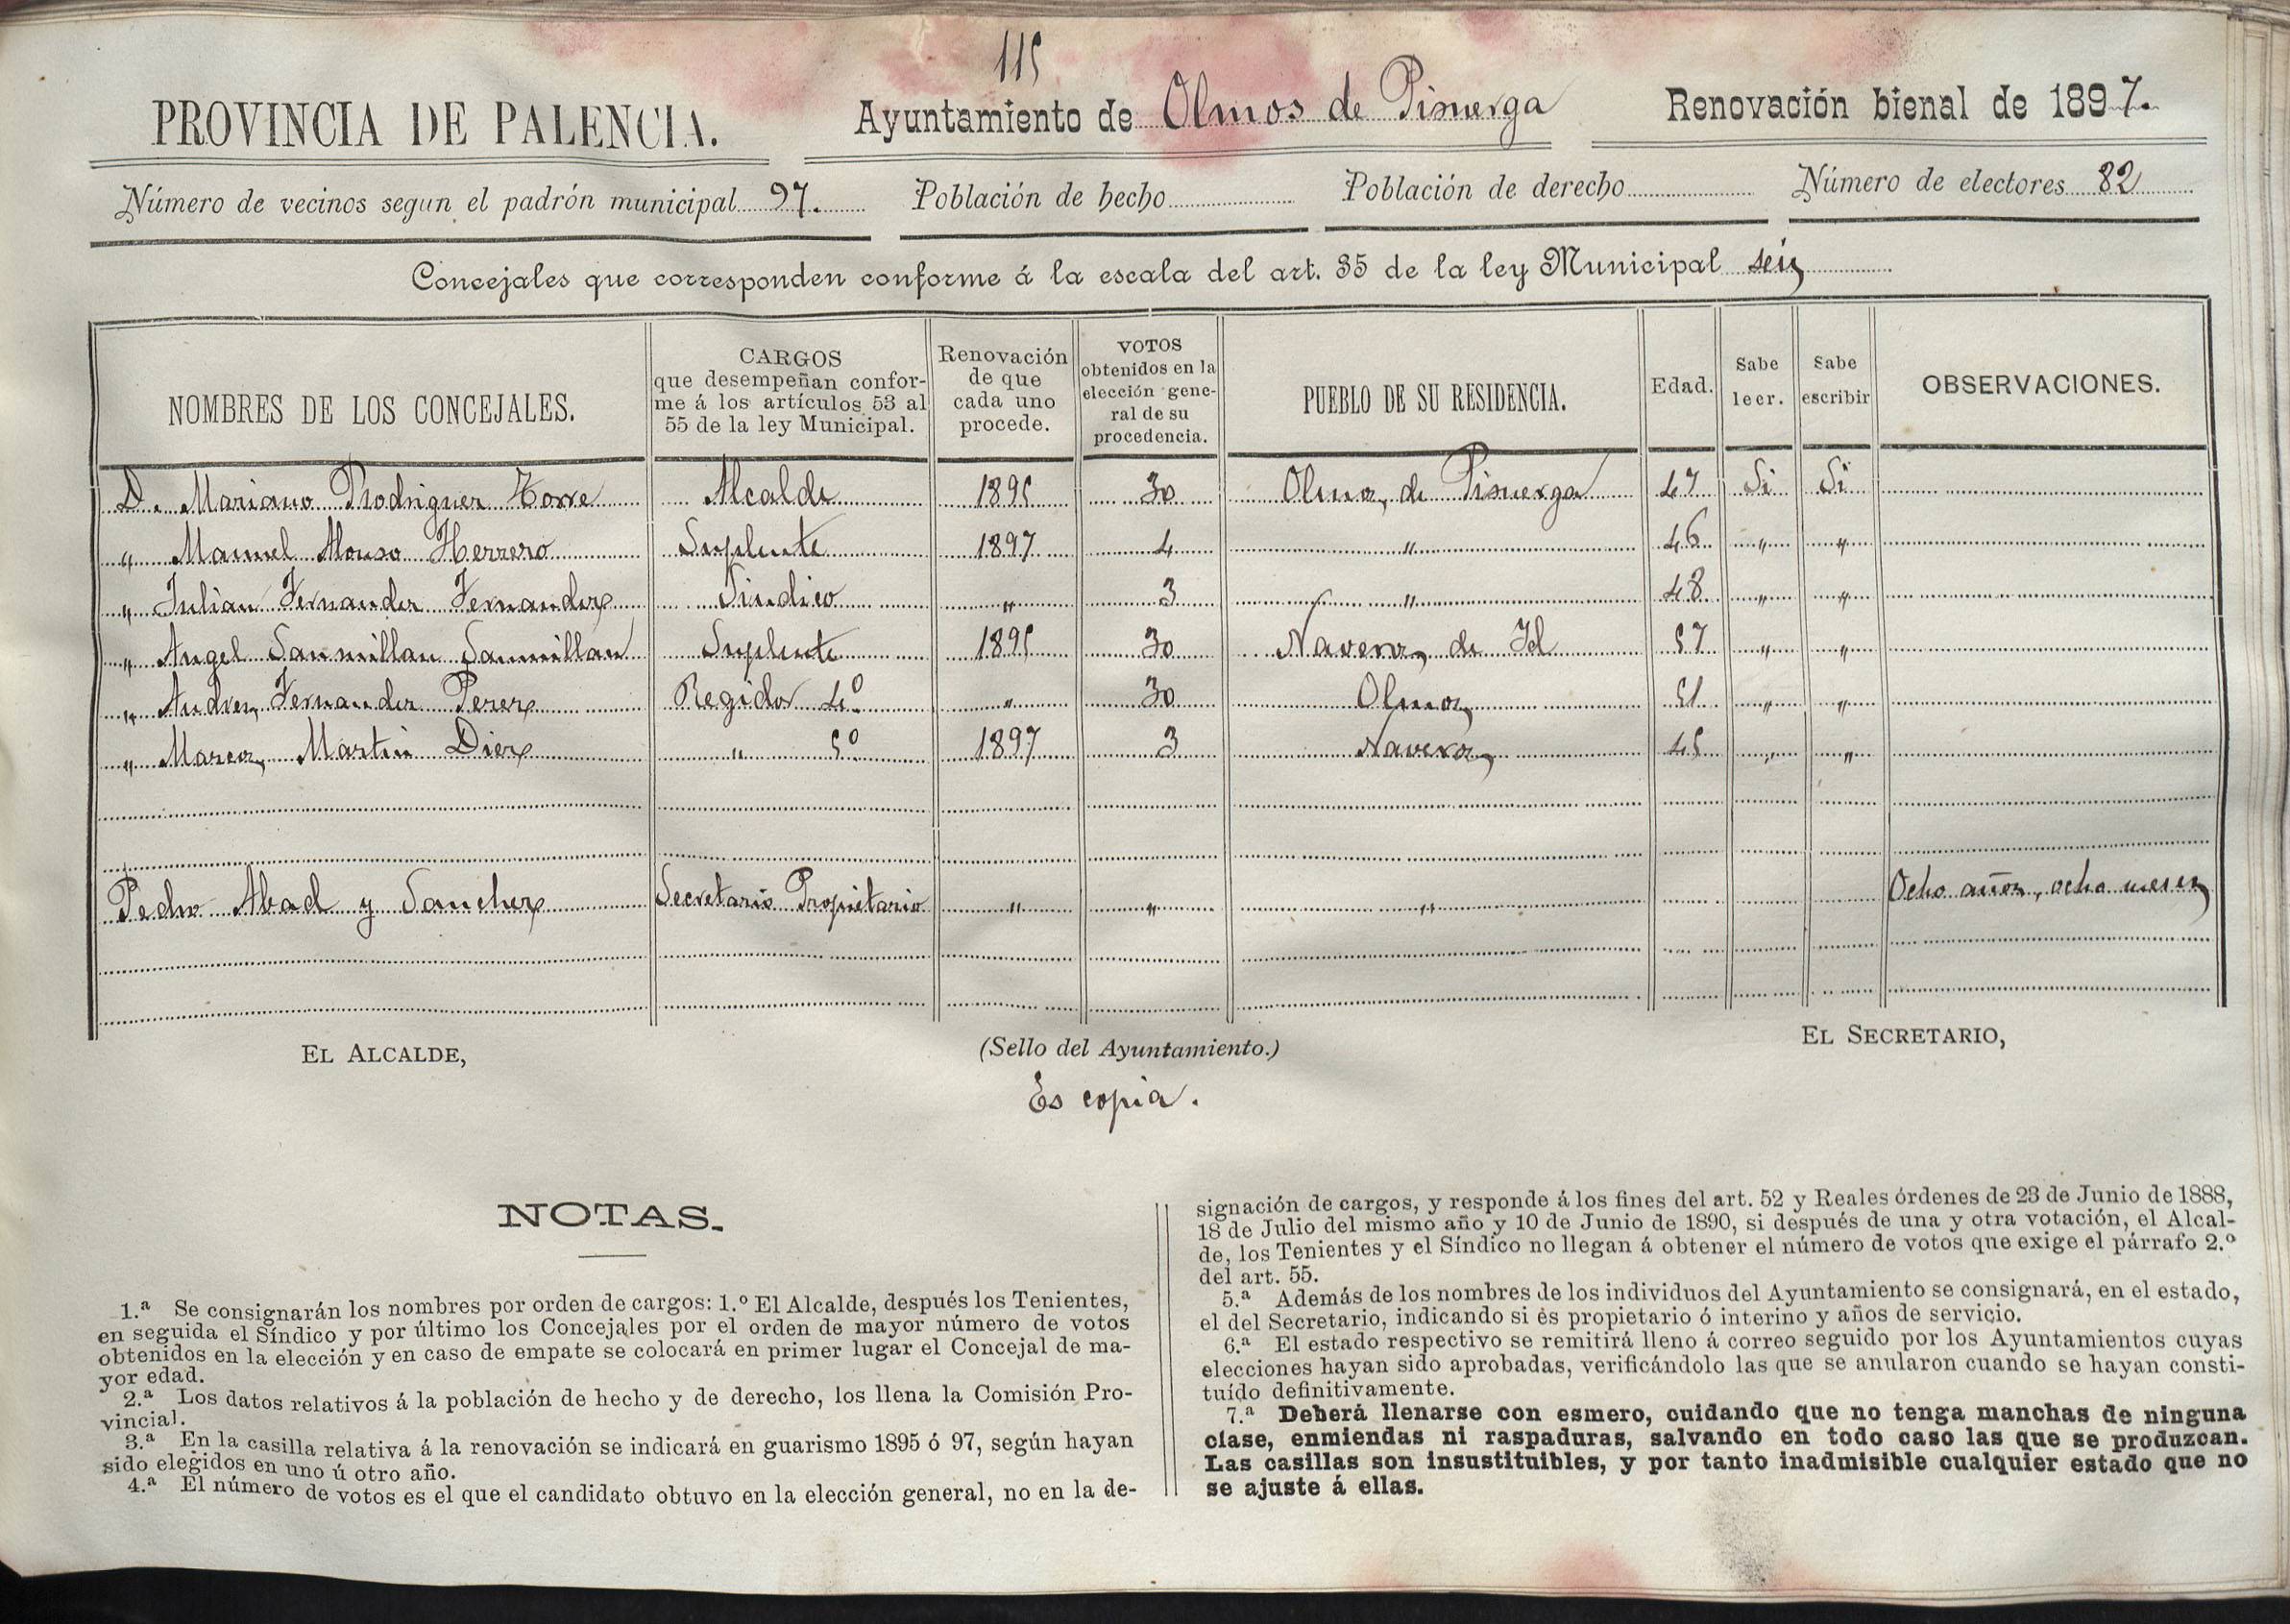 115
PROVINCIA DE PALENCIA.
Ayuntamiento de Olmos de Pisuerga
Renovación bienal de 1897.
Número de vecinos segun el padrón municipal 97.
Población de hecho
Población de derecho
Número de electores 82
Concejales que corresponden conforme á la escala del art. 35 de la ley Municipal seis
NOMBRES DE LOS CONCEJALES.
CARGOS
que desempeñan confor-
me á los artículos 53 al
55 de la ley Municipal.
Renovación
de que
cada uno
procede.
VOTOS
obtenidos en la
elección gene-
ral de su
procedencia.
PUEBLO DE SU RESIDENCIA.
Edad.
Sabe
leer.
Sabe
escribir
OBSERVACIONES.
D. Mariano Rodriguez Torre Alcalde 1895 30 Olmos de Pisuerga 47 Si Si
" Manuel Alonso Herrero Suplente 1897 4 " 46 " "
" Julian Fernandez Fernandez Sindico " 3 " 48 " "
" Angel Sanmillan Sanmillan Suplente 1895 30 Naveros de Id 57 " "
" Andres Fernandez Perez Regidor 4º " 30 Olmos 51 " "
" Marcos Martin Diez " 5º 1897 3 Naveros 45 " "
Pedro Abad y Sanchez Secretario Propietario " " " Ocho años, ocho meses
EL ALCALDE,
(Sello del Ayuntamiento.)
EL SECRETARIO,
Es copia.
NOTAS.
1.ª Se consignarán los nombres por orden de cargos: 1.º El Alcalde, después los Tenientes,
en seguida el Síndico y por último los Concejales por el orden de mayor número de votos
obtenidos en la elección y en caso de empate se colocará en primer lugar el Concejal de ma-
yor edad.
2.ª Los datos relativos á la población de hecho y de derecho, los llena la Comisión Pro-
vincial.
3.ª En la casilla relativa á la renovación se indicará en guarismo 1895 ó 97, según hayan
sido elegidos en uno ú otro año.
4.ª El número de votos es el que el candidato obtuvo en la elección general, no en la de-
signación de cargos, y responde á los fines del art. 52 y Reales órdenes de 23 de Junio de 1888,
18 de Julio del mismo año y 10 de Junio de 1890, si después de una y otra votación, el Alcal-
de, los Tenientes y el Síndico no llegan á obtener el número de votos que exige el párrafo 2.º
del art. 55.
5.ª Además de los nombres de los individuos del Ayuntamiento se consignará, en el estado,
el del Secretario, indicando si es propietario ó interino y años de servicio.
6.ª El estado respectivo se remitirá lleno á correo seguido por los Ayuntamientos cuyas
elecciones hayan sido aprobadas, verificándolo las que se anularon cuando se hayan consti-
tuído definitivamente.
7.ª Deberá llenarse con esmero, cuidando que no tenga manchas de ninguna
clase, enmiendas ni raspaduras, salvando en todo caso las que se produzcan.
Las casillas son insustituibles, y por tanto inadmisible cualquier estado que no
se ajuste á ellas.